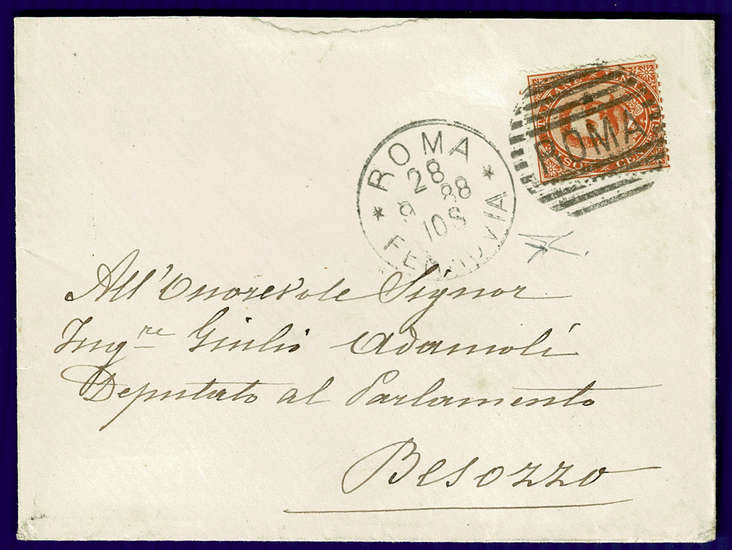 ROMA
28
9 88
10 S
FERROVIA
ROMA
All'Onorevole Signor
Ing.re Giulio Adamoli
Deputato al Parlamento
Besozzo